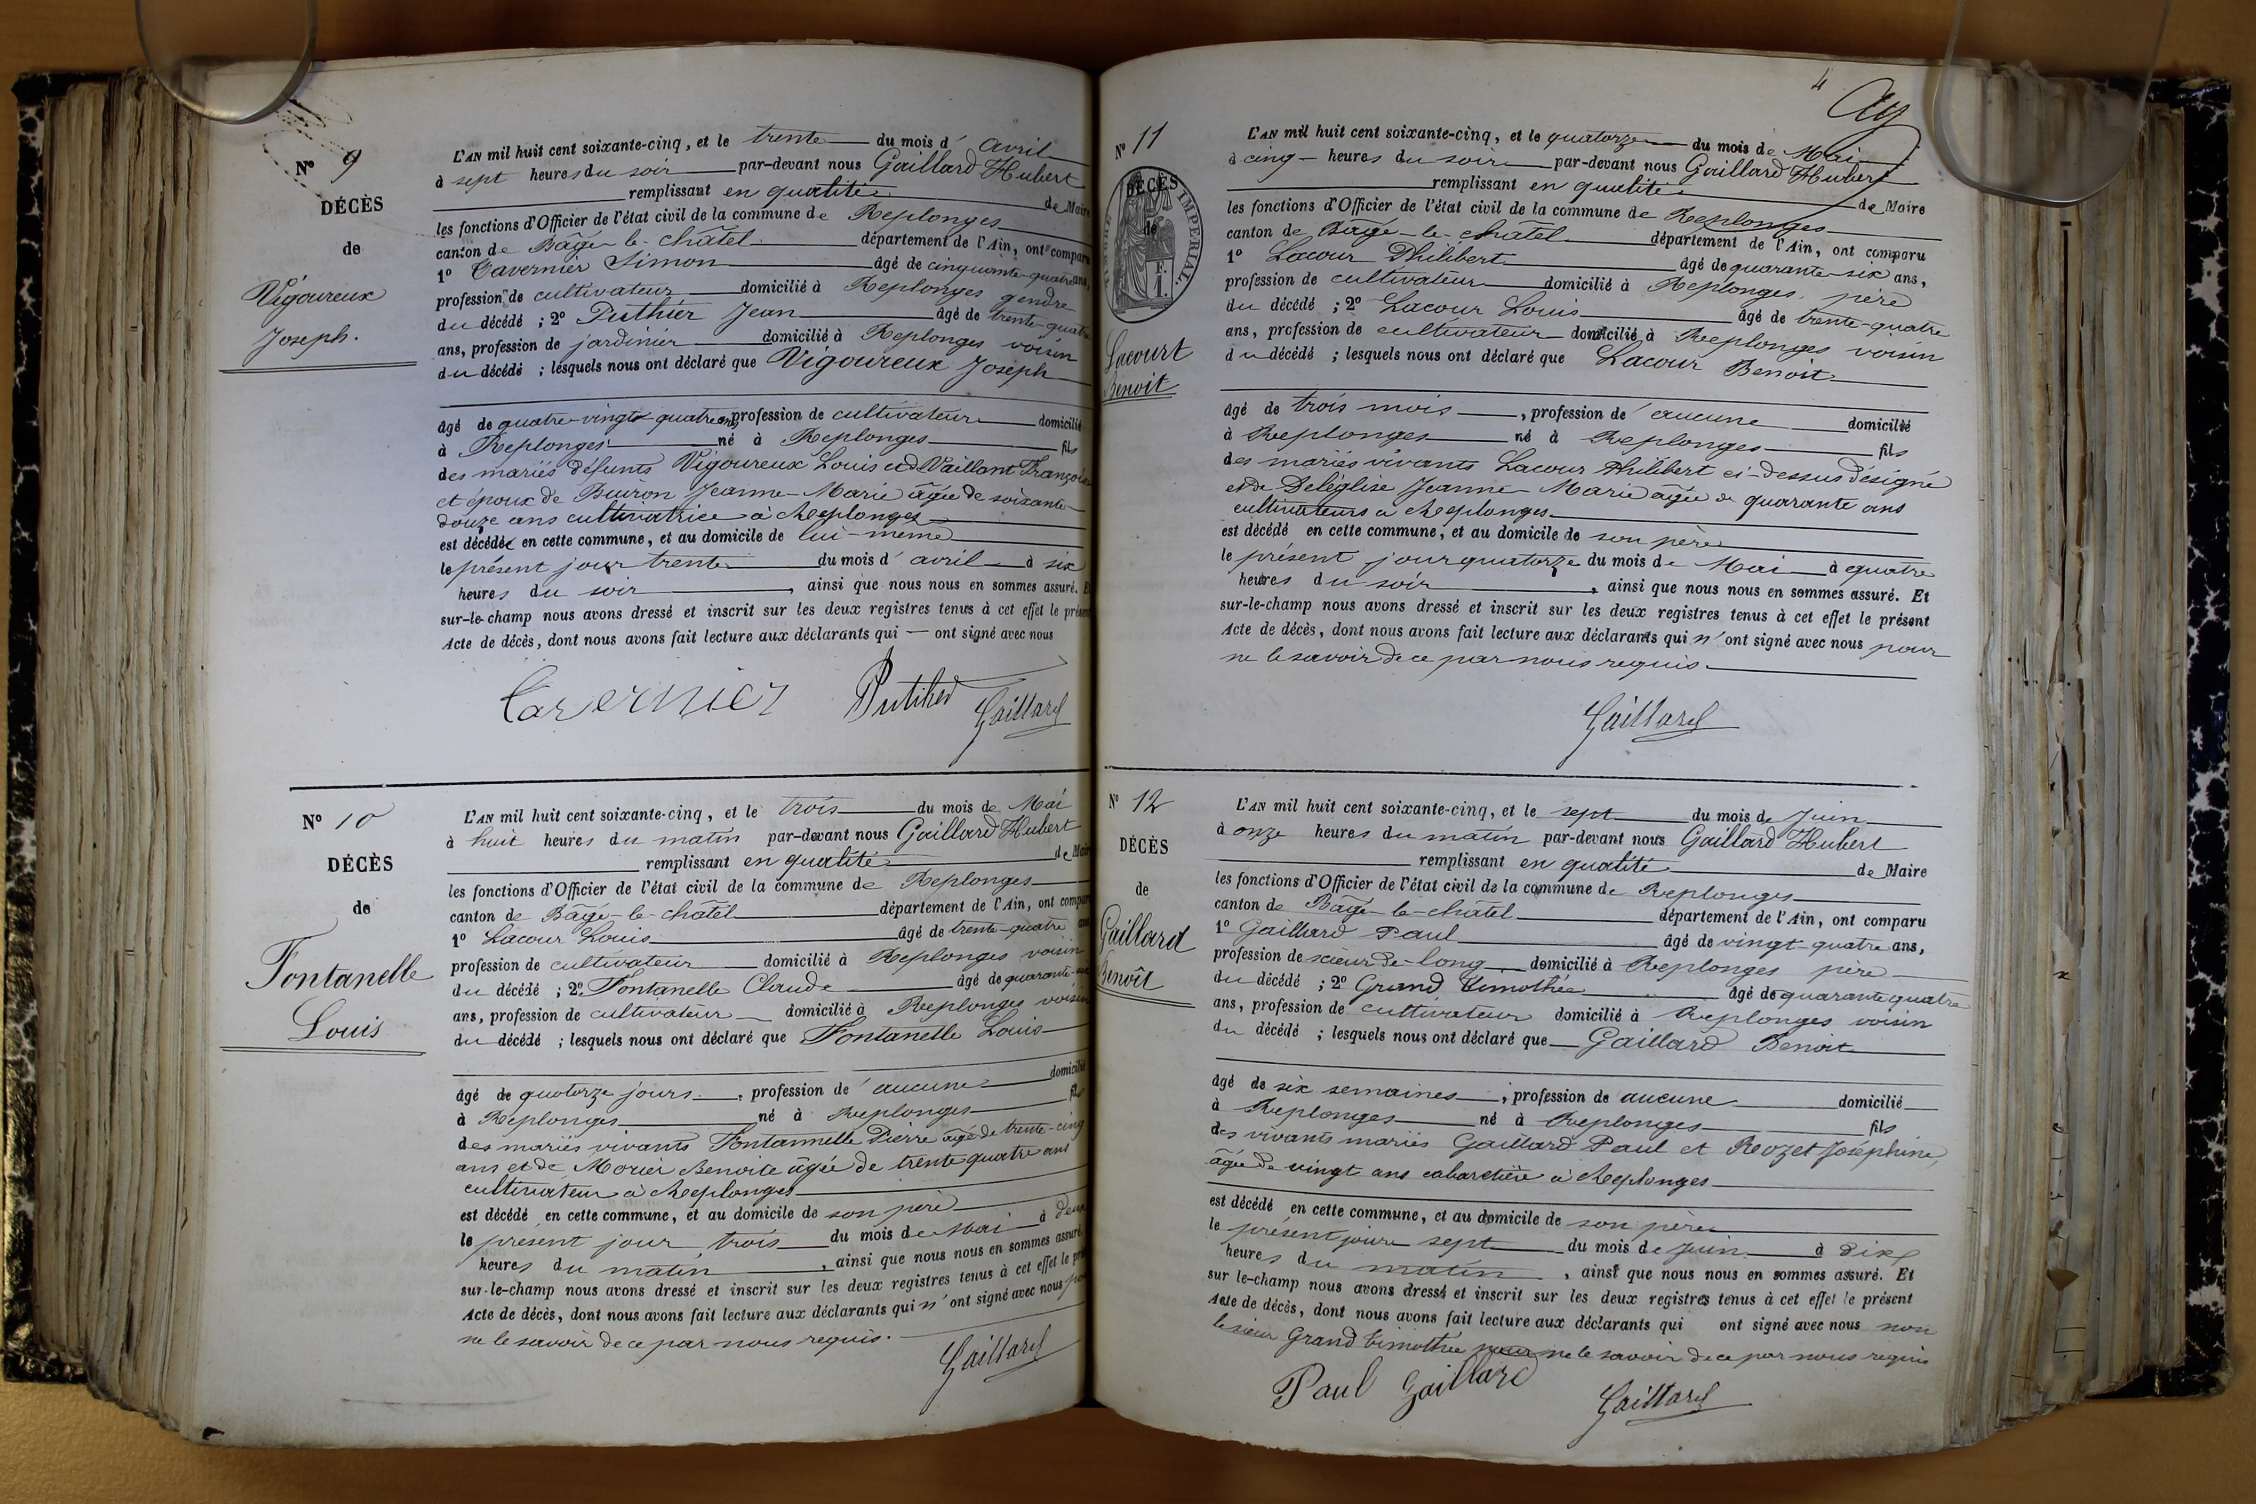 N° 9
DÉCÈS
de
Vigoureux
Joseph.
L'AN mil huit cent soixante-cinq, et le trente du mois d'avril
à sept heures du soir par-devant nous Gaillard Hubert
remplissant en qualité de Maire
les fonctions d'Officier de l'état civil de la commune de Replonges
canton de Bâgé-le-châtel département de l'Ain, ont comparu
1° Tavernier Simon âgé de cinquante-quatre ans,
profession de cultivateur domicilié à Replonges gendre
du décédé ; 2° Puthier Jean âgé de trente-quatre
ans, profession de jardinier domicilié à Replonges voisin
du décédé ; lesquels nous ont déclaré que Vigoureux Joseph
âgé de quatre-vingt-quatre ans, profession de cultivateur domicilié
à Replonges né à Replonges fils
des mariés défunts Vigoureux Louis et d Vaillant Françoise
et époux de Buiron Jeanne-Marie âgée de soixante-
douze ans cultivatrice à Replonges
est décédé en cette commune, et au domicile de lui-même
le présent jour trente du mois d'avril à six
heures du soir, ainsi que nous nous en sommes assuré. Et
sur-le-champ nous avons dressé et inscrit sur les deux registres tenus à cet effet le présent
Acte de décès, dont nous avons fait lecture aux déclarants qui — ont signé avec nous
Tavernier Puthier Gaillard
N° 10
DÉCÈS
de
Fontanelle
Louis
L'AN mil huit cent soixante-cinq, et le trois du mois de Mai
à huit heures du matin par-devant nous Gaillard Hubert
remplissant en qualité de Maire
les fonctions d'Officier de l'état civil de la commune de Replonges
canton de Bâgé-le-châtel département de l'Ain, ont comparu
1° Lacour Louis âgé de trente-quatre ans
profession de cultivateur domicilié à Replonges voisin
du décédé ; 2° Fontanelle Claude âgé de quarante-
ans, profession de cultivateur domicilié à Replonges voisin
du décédé ; lesquels nous ont déclaré que Fontanelle Louis
âgé de quatorze jours, profession de aucune domicilié
à Replonges né à Replonges fils
des mariés vivants Fontannelle Pierre âgé de trente-cinq
ans et de Morier Benoite âgée de trente quatre ans
cultivateur à Replonges
est décédé en cette commune, et au domicile de son père
le présent jour trois du mois de Mai à deux
heures du matin, ainsi que nous nous en sommes assuré.
sur-le-champ nous avons dressé et inscrit sur les deux registres tenus à cet effet le pré
Acte de décès, dont nous avons fait lecture aux déclarants qui n'ont signé avec nous pour
ne le savoir de ce par nous requis.
Gaillard
4
N° 11
DÉCÈS
de
IMPERIAL
Lacourt
Benoit
L'AN mil huit cent soixante-cinq, et le quatorze du mois de Mai
à cinq heures du soir par-devant nous Gaillard Hubert
remplissant en qualité de Maire
les fonctions d'Officier de l'état civil de la commune de Replonges
canton de Bâgé-le-châtel département de l'Ain, ont comparu
1° Lacour Philibert âgé de quarante-six ans,
profession de cultivateur domicilié à Replonges, père
du décédé ; 2° Lacour Louis âgé de trente-quatre
ans, profession de cultivateur domicilié à Replonges voisin
du décédé ; lesquels nous ont déclaré que Lacour Benoit
âgé de trois mois, profession de aucune domicilié
à Replonges né à Replonges fils
des mariés vivants Lacour Philibert ci-dessus désigné
et de Deléglise Jeanne-Marie âgée de quarante ans
cultivateurs à Replonges
est décédé en cette commune, et au domicile de son père
le présent jour quatorze du mois de Mai à quatre
heures du soir, ainsi que nous nous en sommes assuré. Et
sur-le-champ nous avons dressé et inscrit sur les deux registres tenus à cet effet le présent
Acte de décès, dont nous avons fait lecture aux déclarants qui n'ont signé avec nous pour
ne le savoir de ce par nous requis.
Gaillard
N° 12
DÉCÈS
de
Gaillard
Benoît
L'AN mil huit cent soixante-cinq, et le sept du mois de Juin
à onze heures du matin par-devant nous Gaillard Hubert
remplissant en qualité de Maire
les fonctions d'Officier de l'état civil de la commune de Replonges
canton de Bâgé-le-châtel département de l'Ain, ont comparu
1° Gaillard Paul âgé de vingt-quatre ans,
profession de scieur de-long domicilié à Replonges père
du décédé ; 2° Grand Timothée âgé de quarante quatre
ans, profession de cultivateur domicilié à Replonges voisin
du décédé ; lesquels nous ont déclaré que Gaillard Benoit
âgé de six semaines, profession de aucune domicilié
à Replonges né à Replonges fils
des vivants mariés Gaillard Paul et Rozet Joséphine,
âgée de vingt ans cabaretière à Replonges
est décédé en cette commune, et au domicile de son père
le présent jour sept du mois de Juin à dix
heures du matin, ainsi que nous nous en sommes assuré. Et
sur le-champ nous avons dressé et inscrit sur les deux registres tenus à cet effet le présent
Acte de décès, dont nous avons fait lecture aux déclarants qui ont signé avec nous non
le sieur Grand Timothée pour ne le savoir de ce par nous requis
Paul Gaillard Gaillard